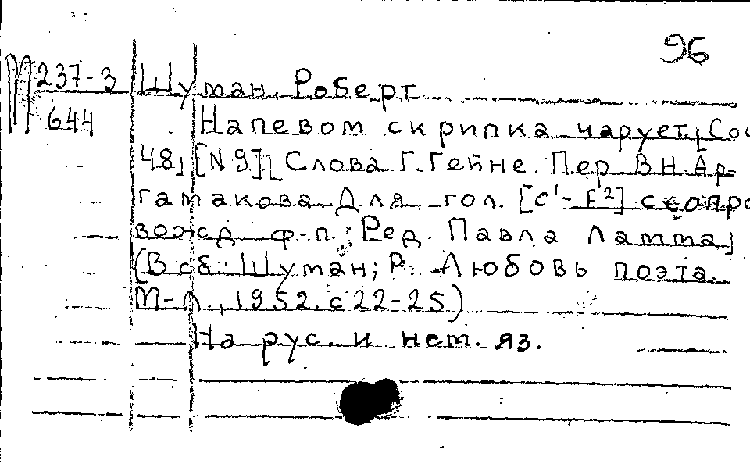 96
М237-3 Шуман Роберт
644 Напевом скрипка чарует, Соч
48, [N 9] Слова Г. Гейне. Пер В.Н. Ар-
гамакова Для гол. [c¹-F²] с сопро
вожд ф-п.; Ред. Павла Ламма
(В сб: Шуман; Р. Любовь поэта.
М-Л, 1952. с 22-25)
На рус. и нем. яз.